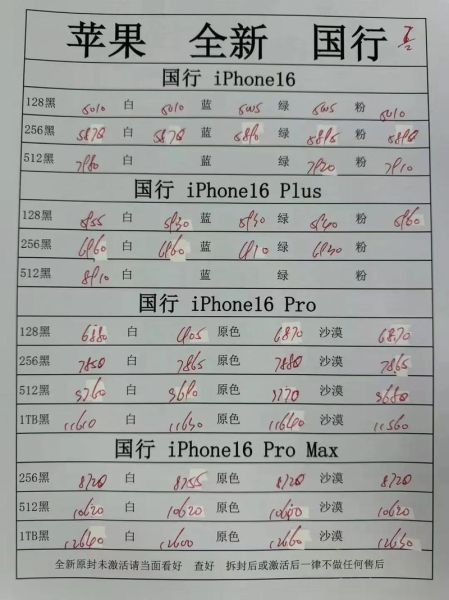 苹果 全新 国行
国行 iPhone16
128黑 5010 白 5010 蓝 绿 粉 5010
256黑 5870 白 5870 蓝 5890 绿 5895 粉 5890
512黑 7980 白 蓝 绿 7920 粉 7910
国行 iPhone16 Plus
128黑 5955 白 5930 蓝 5930 绿 5940 粉 5960
256黑 6960 白 6960 蓝 6910 绿 6930 粉
512黑 8910 白 蓝 绿 粉
国行 iPhone16 Pro
128黑 6880 白 6905 原色 6870 沙漠 6870
256黑 7850 白 7865 原色 7880 沙漠 7865
512黑 9760 白 9690 原色 9770 沙漠 9680
1TB黑 11610 白 11630 原色 11640 沙漠 11560
国行 iPhone16 Pro Max
256黑 8720 白 8755 原色 8720 沙漠 8720
512黑 10620 白 10620 原色 10640 沙漠 10620
1TB黑 12640 白 12600 原色 12660 沙漠 12630
全新原封未激活请当面看好 查好 拆封后或激活后一律不做任何售后